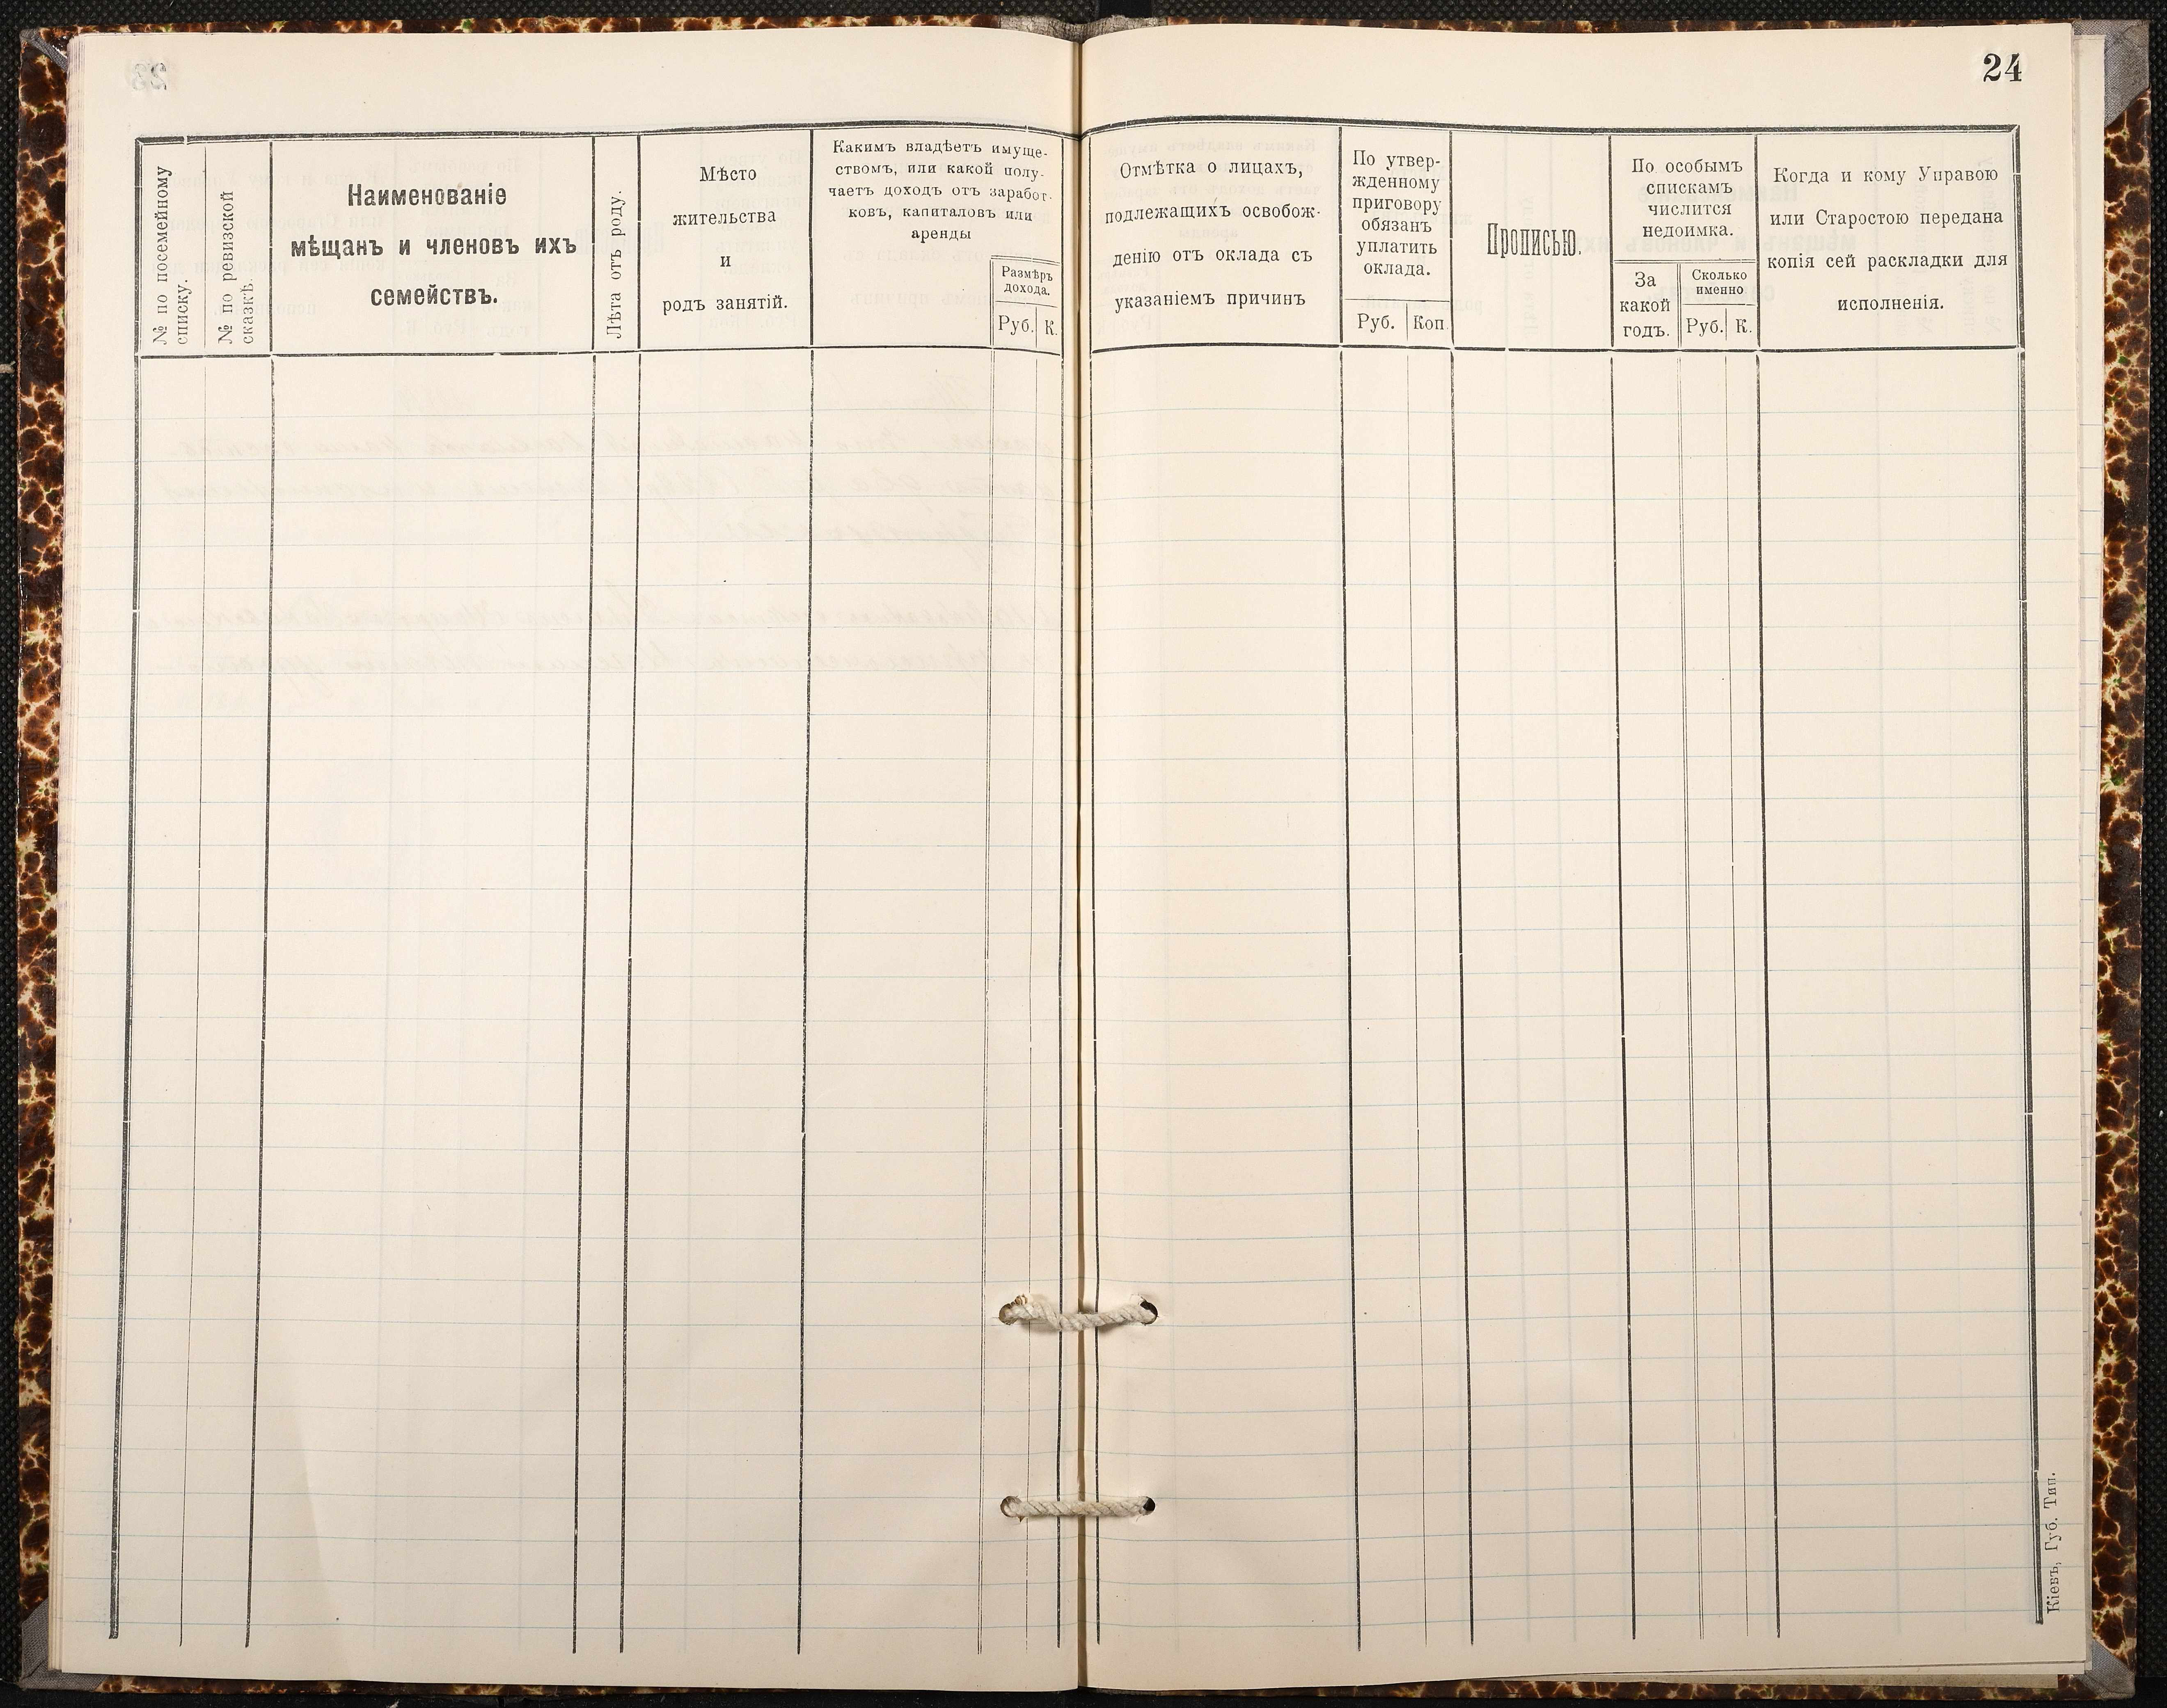 24
№ по посемейному
списку.
№ по ревизской
сказкѣ.
Наименованіе
мѣщанъ и членовъ ихъ
семействъ.
Лѣта отъ роду.
Мѣсто
жительства
и
родъ занятій.
Какимъ владѣетъ имуще-
ствомъ, или какой полу-
чаетъ доходъ отъ заработ-
ковъ, капиталовъ или
аренды
Размѣръ
дохода.
Руб. К.
Отмѣтка о лицахъ,
подлежащихъ освобож-
денію отъ оклада съ
указаніемъ причинъ
По утвер-
жденному
приговору
обязанъ
уплатить
оклада.
Руб. Коп.
Прописью.
По особымъ
спискамъ
числится
недоимка.
За
какой
годъ.
Сколько
именно
Руб. К.
Когда и кому Управою
или Старостою передана
копія сей раскладки для
исполненія.
Кіевъ, Губ. Тип.